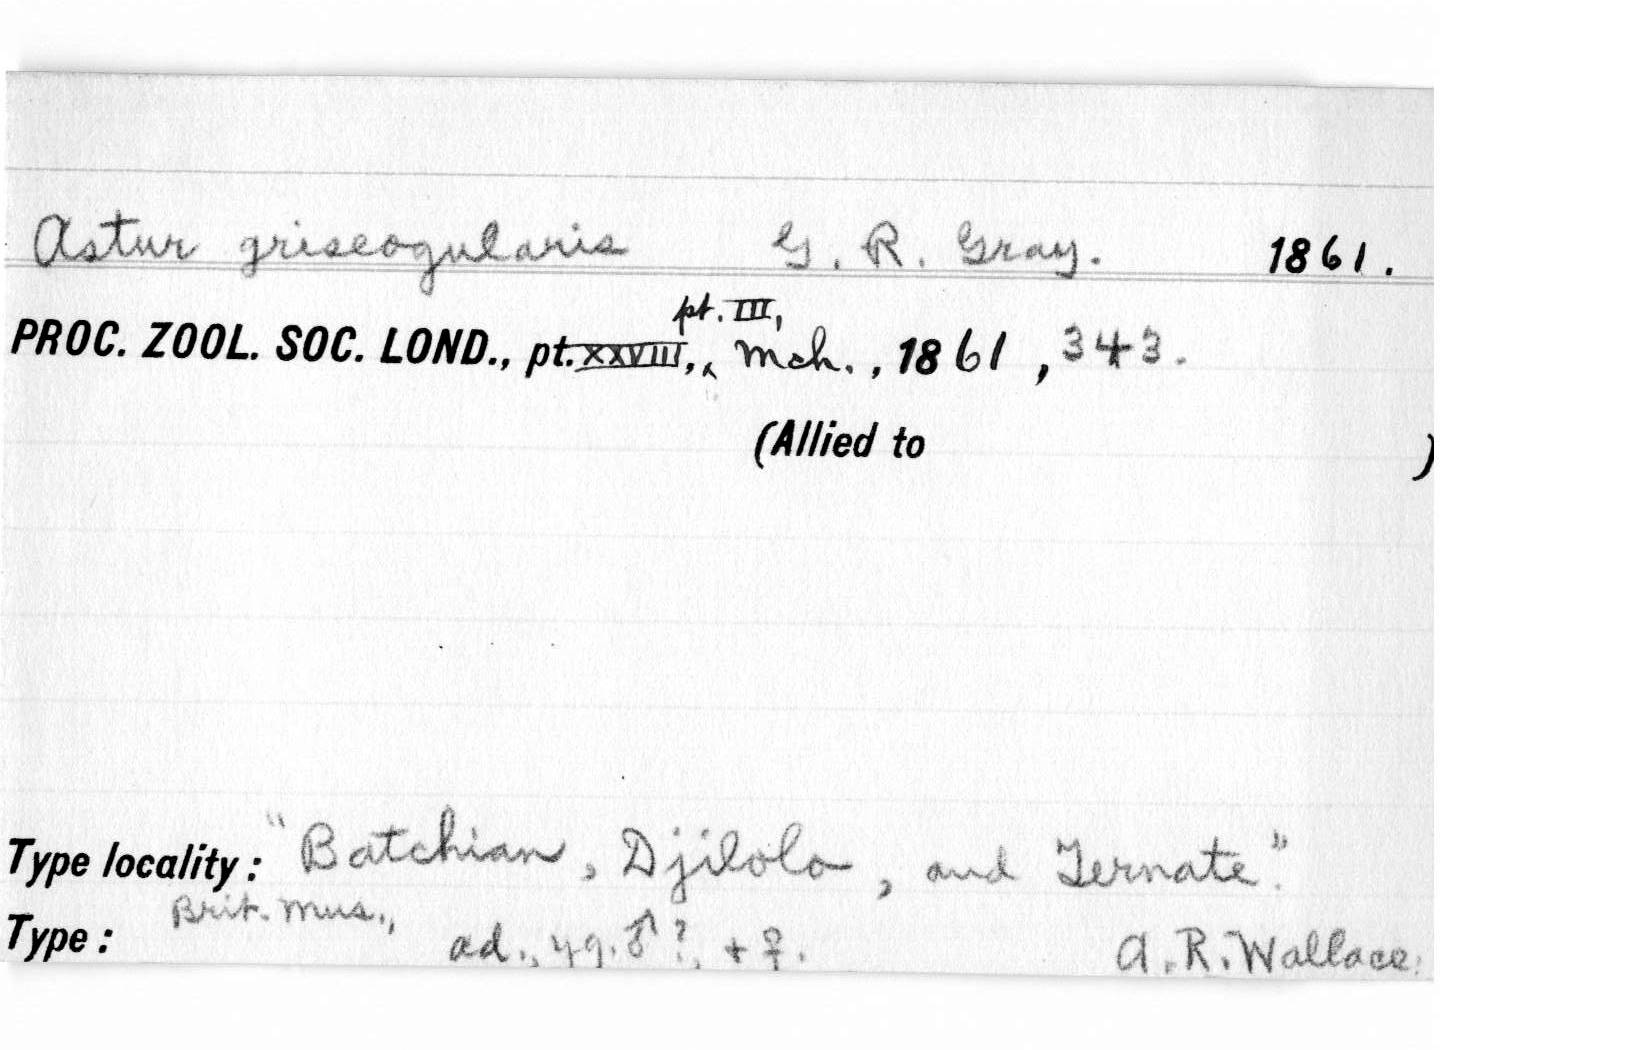 Astur griseogularis G. R. Gray. 1861.
pt. III,
PROC. ZOOL. SOC. LOND., pt. XXVIII, Mch., 1861, 343.
(Allied to )
Type locality: "Batchian, Djilolo, and Ternate".
Brit. Mus.,
Type: ad., yg. ♂?, + ♀. A. R. Wallace.